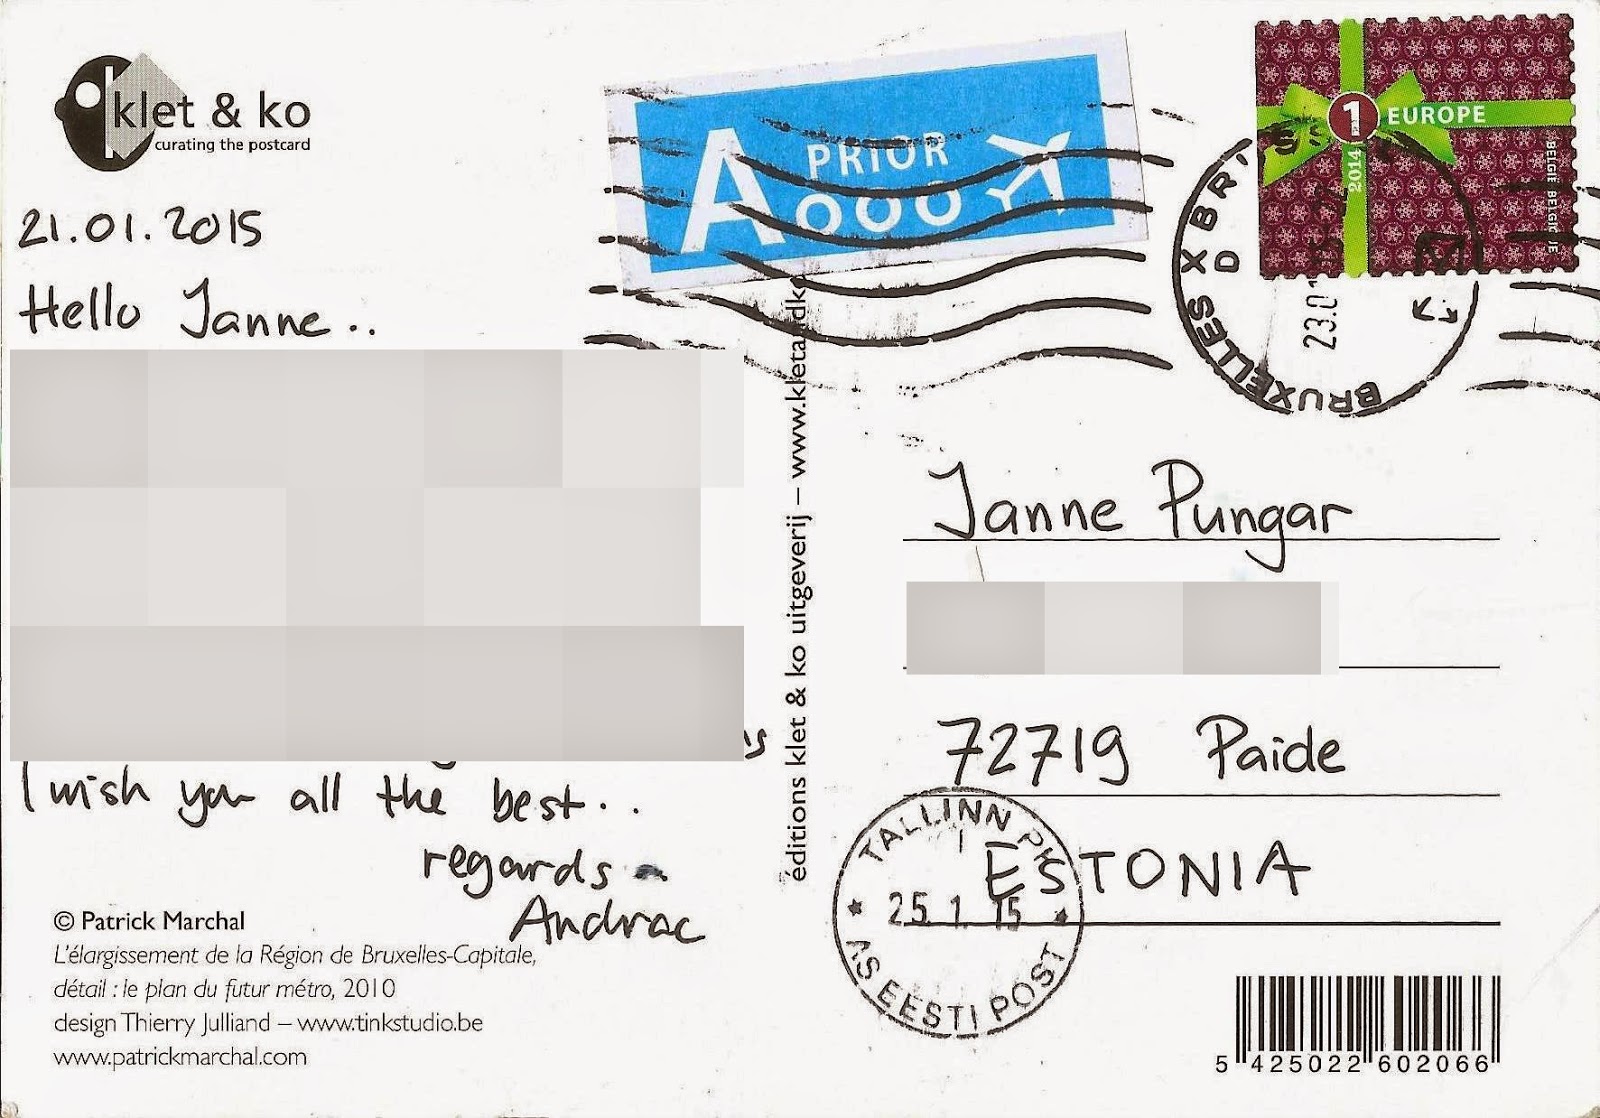 klet & ko
curating the postcard
21.01.2015
Hello Janne..
I wish you all the best..
regards
© Patrick Marchal
L'élargissement de la Région de Bruxelles-Capitale,
détail : le plan du futur métro, 2010
design Thierry Julliand – www.tinkstudio.be
www.patrickmarchal.com
éditions klet & ko uitgeverij – www.kletandko
A PRIOR
1 EUROPE
2014
BELGIE BELGIQUE
BRUXELLES X BR
D
23.0
Janne Pungar
72719 Paide
ESTONIA
TALLINN PK
25 1 15
AS EESTI POST
5 425022 602066